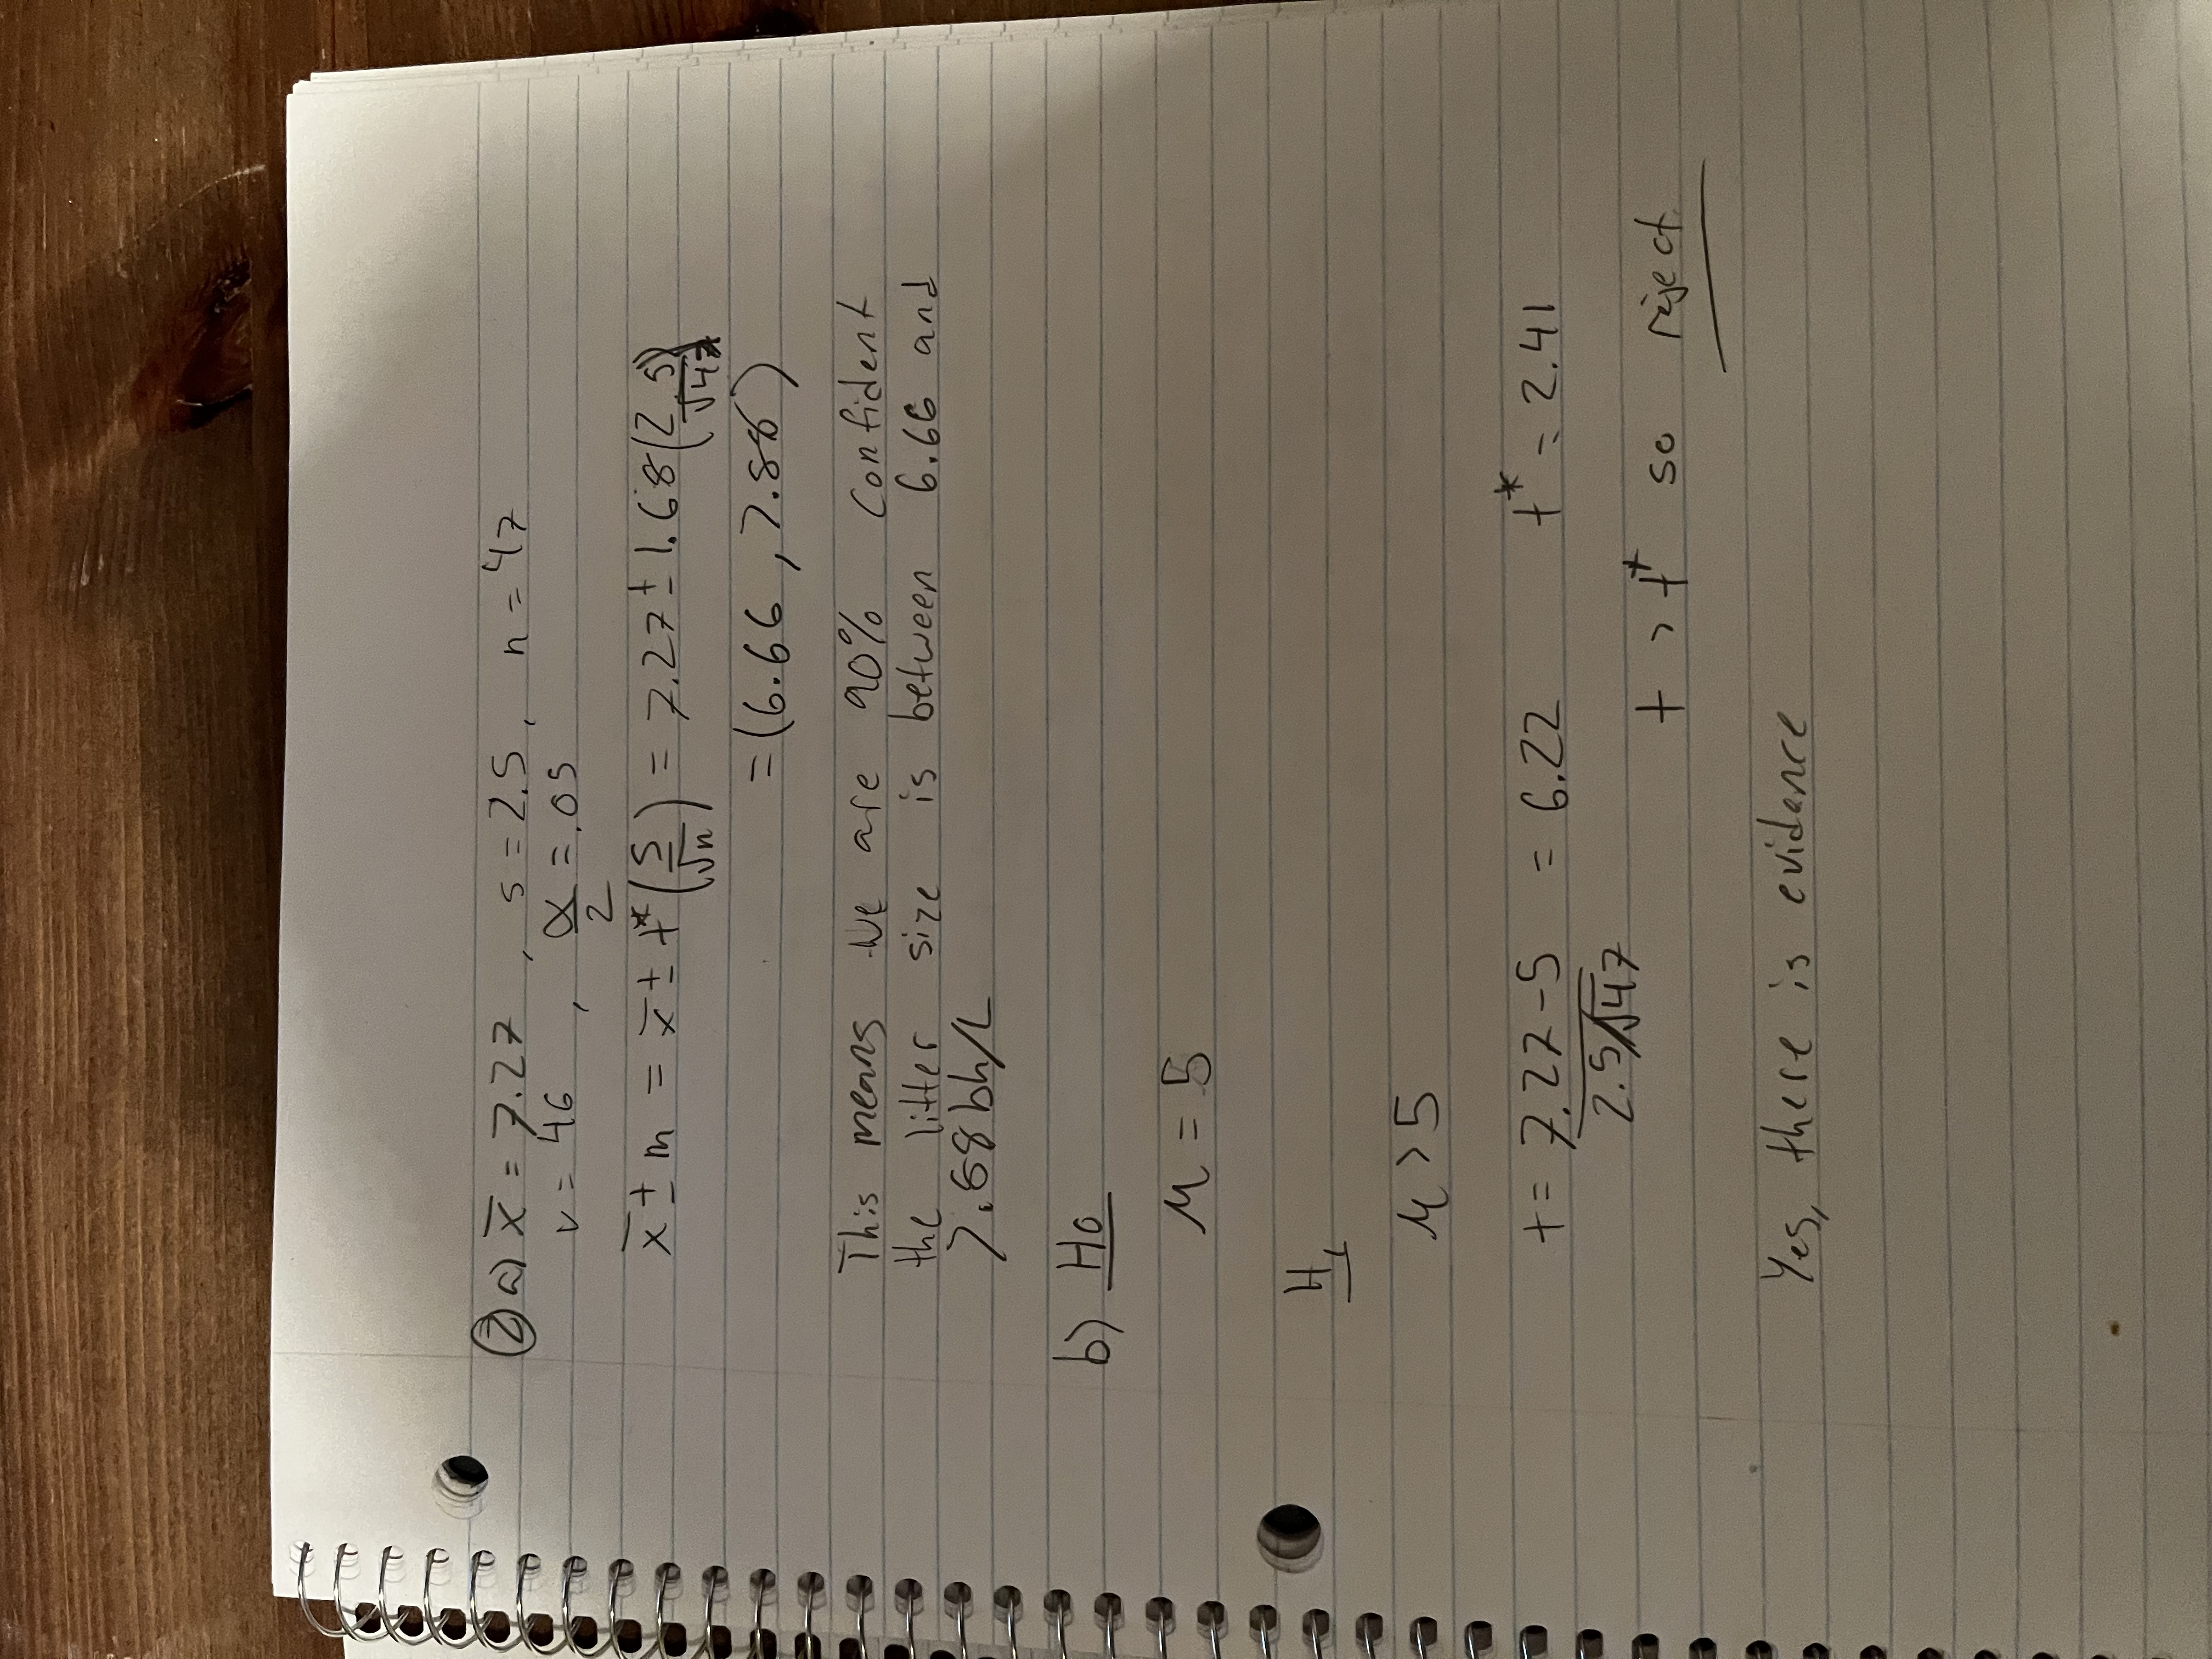 ② a) x̄ = 7.27 , s = 2.5, n = 47
v = 46 , α/2 = .05
x̄ ± m = x̄ ± t* (s/√n) = 7.27 ± 1.68 (2.5/√47)
= (6.66 , 7.88)
This means we are 90% confident
the litter size is between 6.66 and
7.88 bh/L
b) H0
μ = 5
H1
μ > 5
t = (7.27 - 5)/(2.5/√47) = 6.22 t* = 2.41
t > t* so reject
Yes, there is evidence